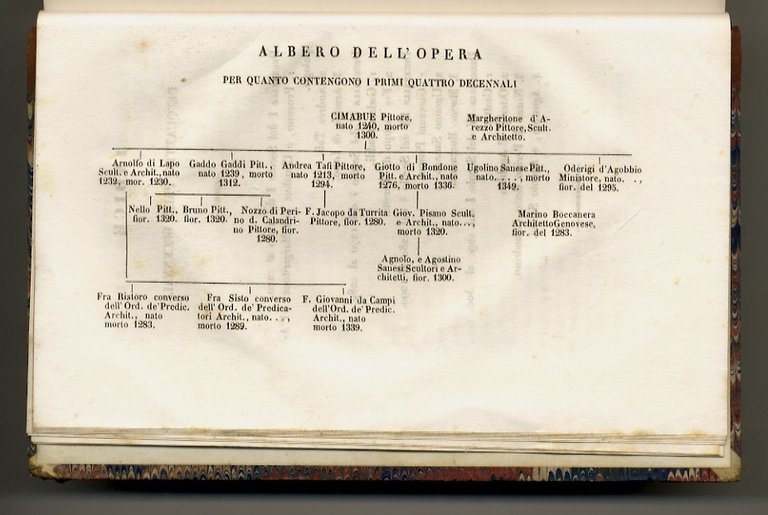 ALBERO DELL'OPERA
PER QUANTO CONTENGONO I PRIMI QUATTRO DECENNALI
CIMABUE Pittore,
nato 1240, morto
1300.
Margheritone d'A-
rezzo Pittore, Scult.
e Architetto.
Arnolfo di Lapo
Scult. e Archit., nato
1232, mor. 1230.
Gaddo Gaddi Pitt.,
nato 1239, morto
1312.
Andrea Tafi Pittore,
nato 1213, morto
1294.
Giotto di Bondone
Pitt. e Archit., nato
1276, morto 1336.
Ugolino Sanese Pitt.,
nato....., morto
1349.
Oderigi d'Agobbio
Miniatore, nato. . .,
fior. del 1295.
Nello Pitt.,
fior. 1320.
Bruno Pitt.,
fior. 1320.
Nozzo di Peri-
no d. Calandri-
no Pittore, fior.
1280.
F. Jacopo da Turrita
Pittore, fior. 1280.
Giov. Pisano Scult.
e Archit., nato...,
morto 1320.
Marino Boccanera
Architetto Genovese,
fior. del 1283.
Agnolo, e Agostino
Sanesi Scultori e Ar-
chitetti, fior. 1300.
Fra Ristoro converso
dell'Ord. de'Predic.
Archit., nato
morto 1283.
Fra Sisto converso
dell'Ord. de'Predica-
tori Archit., nato....,
morto 1289.
F. Giovanni da Campi
dell'Ord. de'Predic.
Archit., nato
morto 1339.